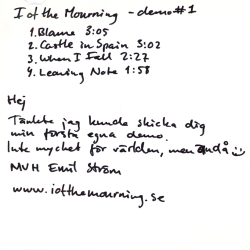 I of the Mourning - demo#1
1. Blame 3:05
2. Castle in Spain 3:02
3. When I Fall 2:27
4. Leaving Note 1:58
Hej
Tänkte jag kunde skicka dig
min första egna demo.
Inte mycket för världen, men ändå :)
MVH Emil Ström
www.iofthemourning.se